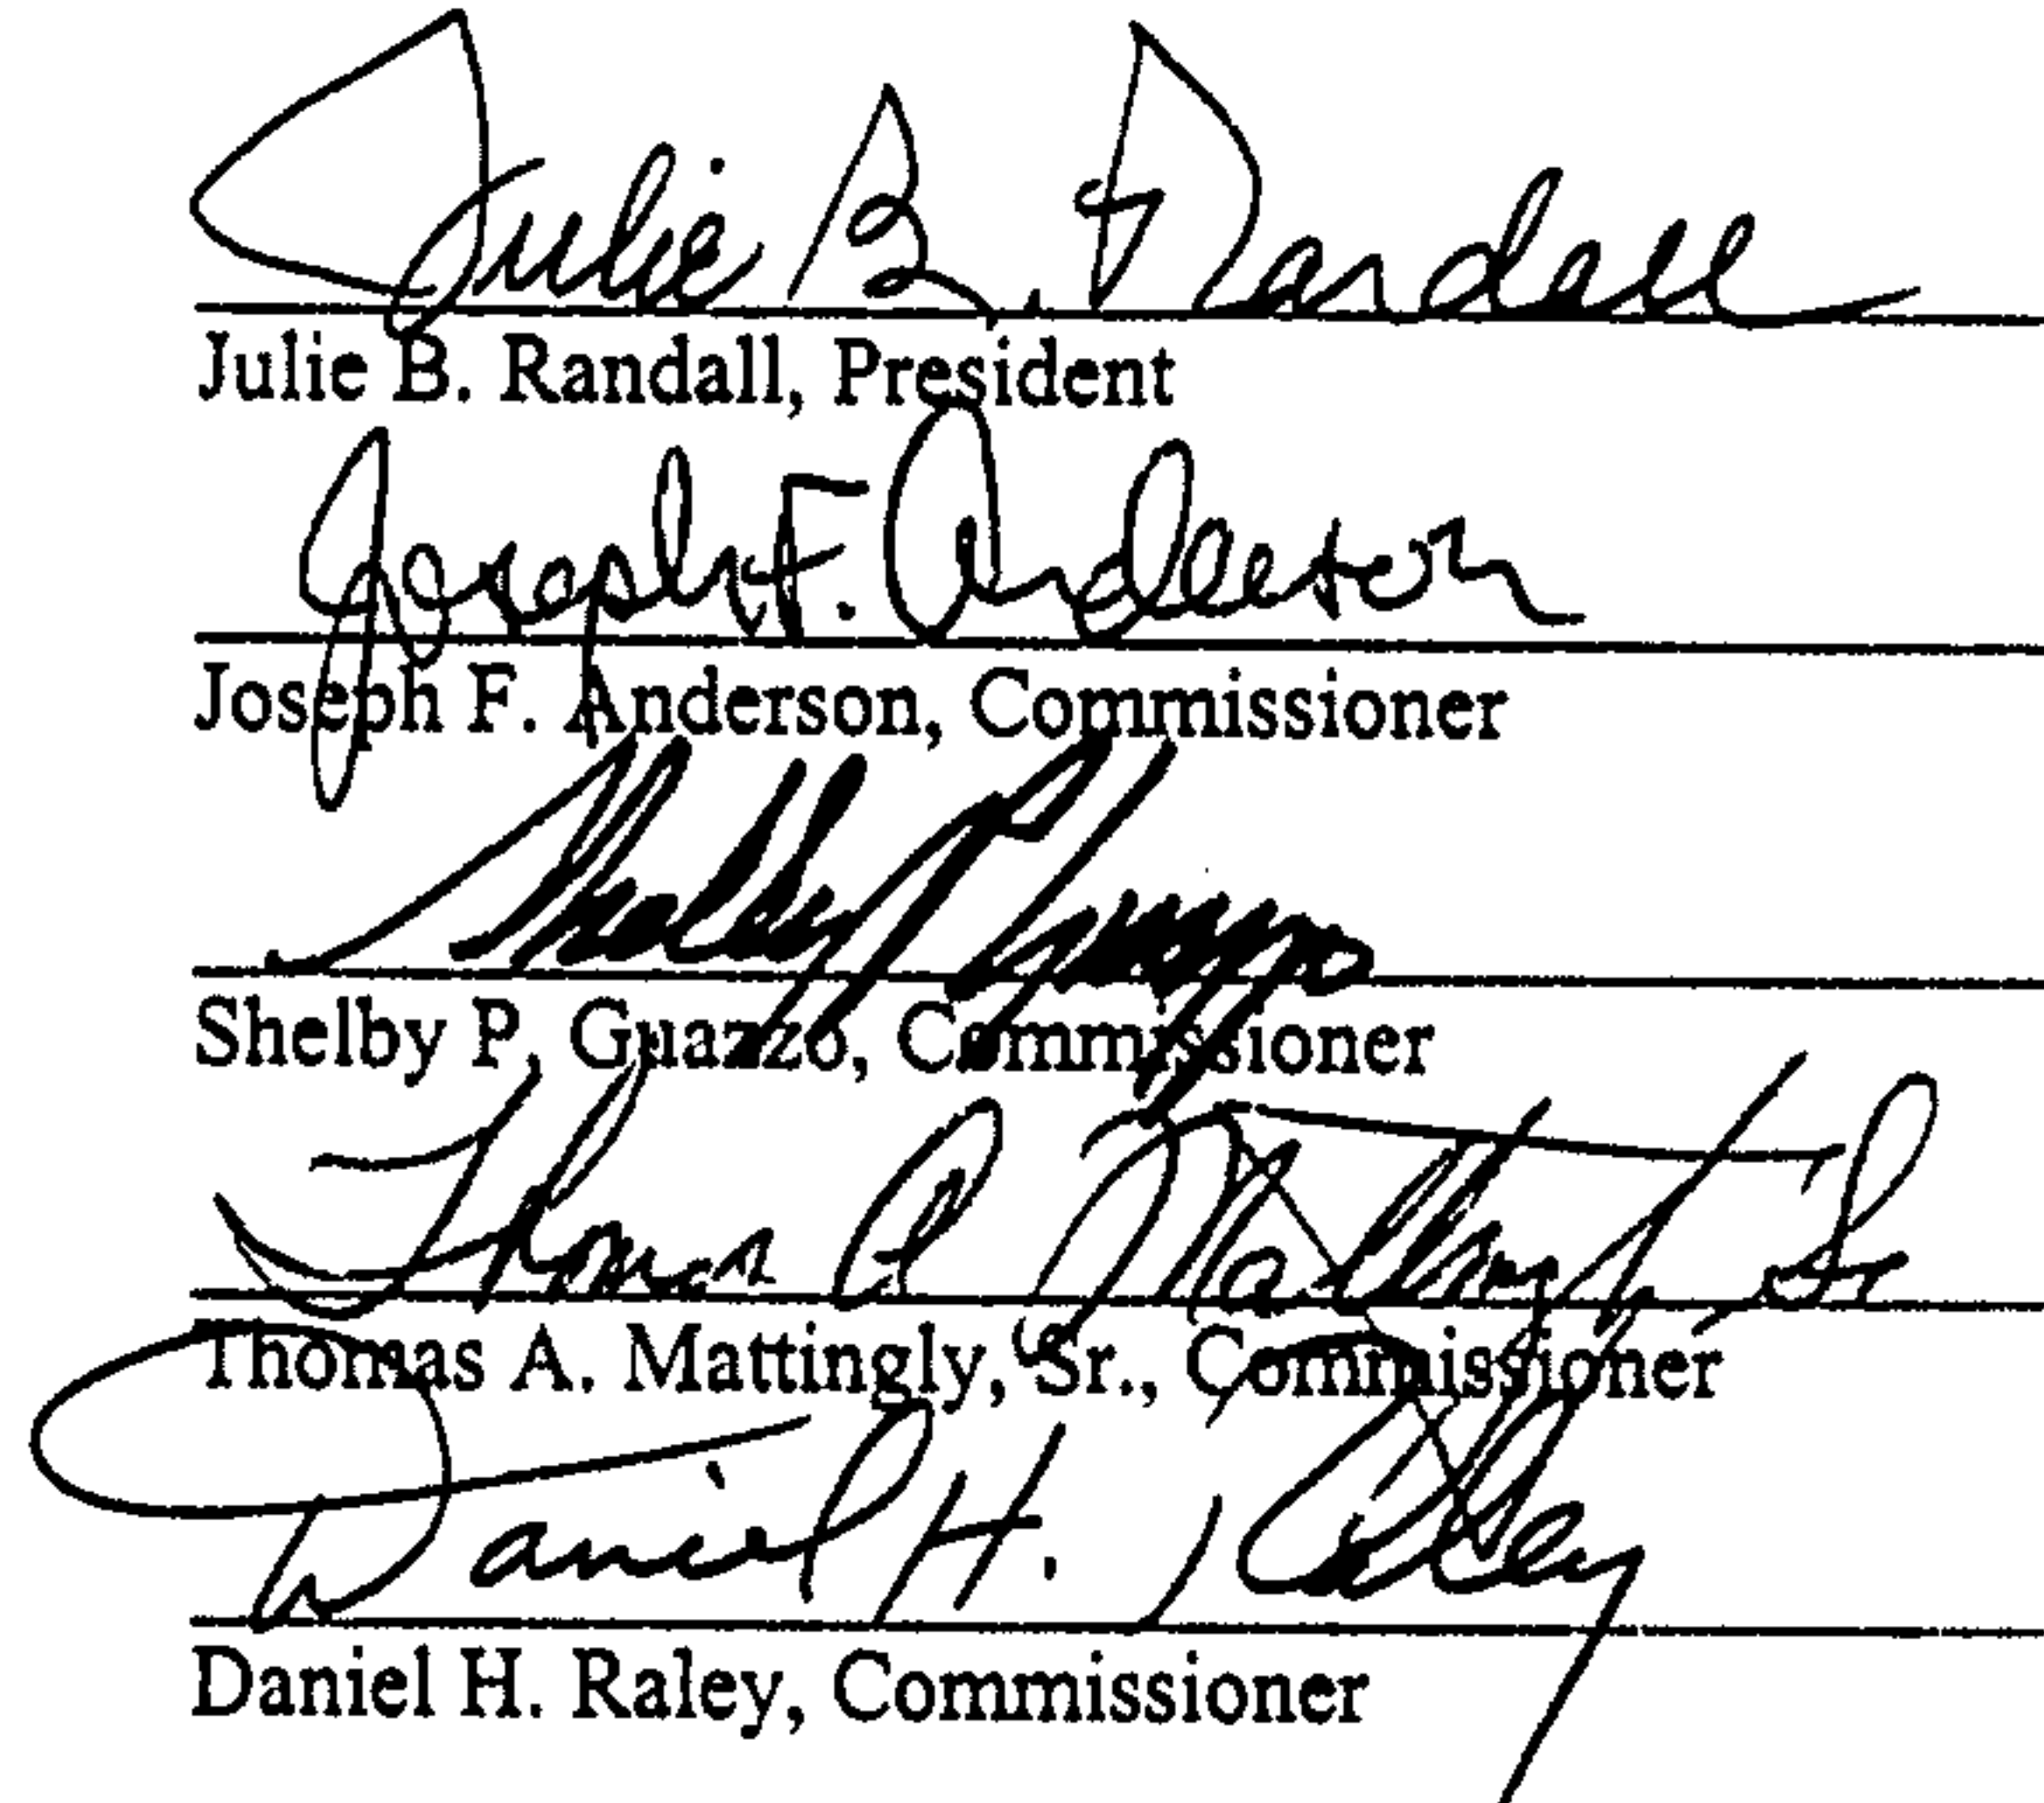 Julie B. Randall
Julie B. Randall, President
Joseph F. Anderson
Joseph F. Anderson, Commissioner
Shelby P. Guazzo
Shelby P. Guazzo, Commissioner
Thomas A. Mattingly Sr
Thomas A. Mattingly, Sr., Commissioner
Daniel H. Raley
Daniel H. Raley, Commissioner